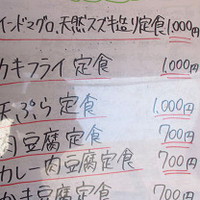 インドマグロ、天然スズキ造り定食1,000円
カキフライ定食 1,000円
天ぷら定食 1,000円
肉豆腐定食 700円
カレー肉豆腐定食 700円
かき豆腐定食 700円